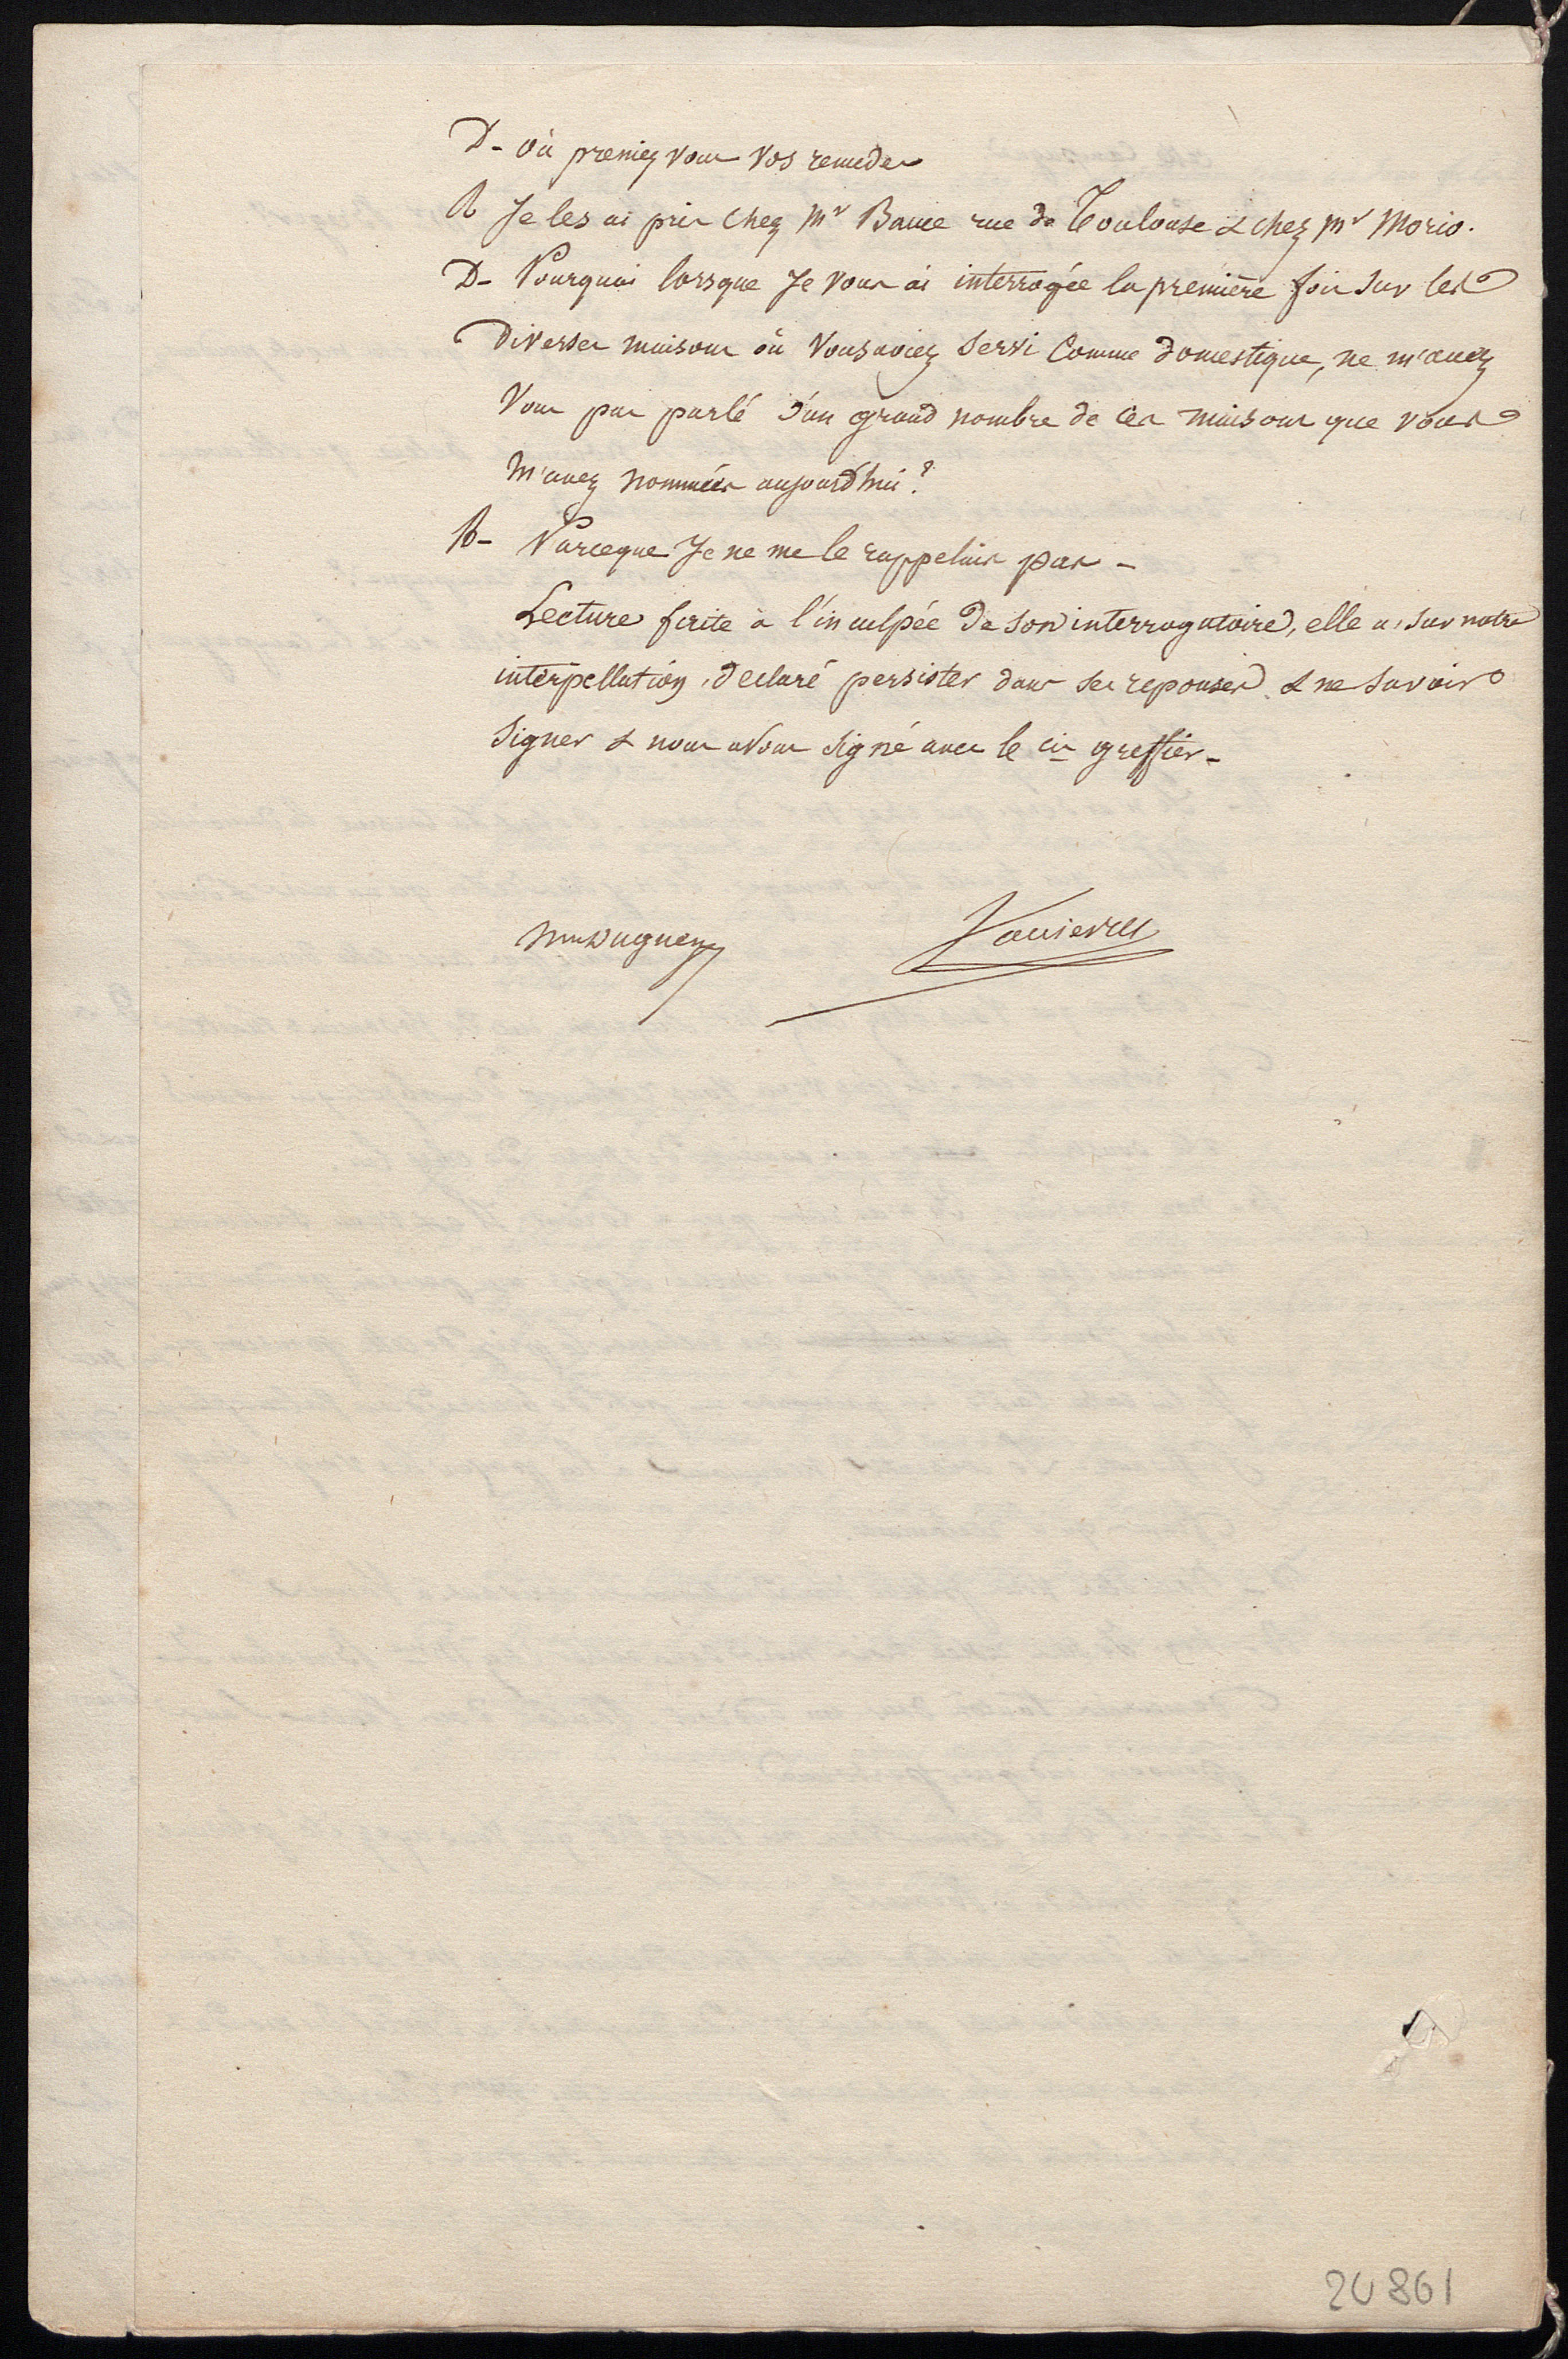 D- où preniez vous vos remedes
R Je les ai pris chez Mr Bauce rue de Toulouse & chez Mr Morio.
D- Pourquoi lorsque Je vous ai interrogée la première fois sur les
diverses maisons où vous aviez servi comme domestique, ne m'avez
vous pas parlé d'un grand nombre de ces maisons que vous
m'avez nommées aujourd'hui?
R- Parceque Je ne me le rappelais pas -
Lecture faite à l'inculpée de son interrogatoire, elle a, sur notre
interpellation, declaré persister dans ses reponses & ne savoir
signer & nous avons signé avec le cis greffier-
20861